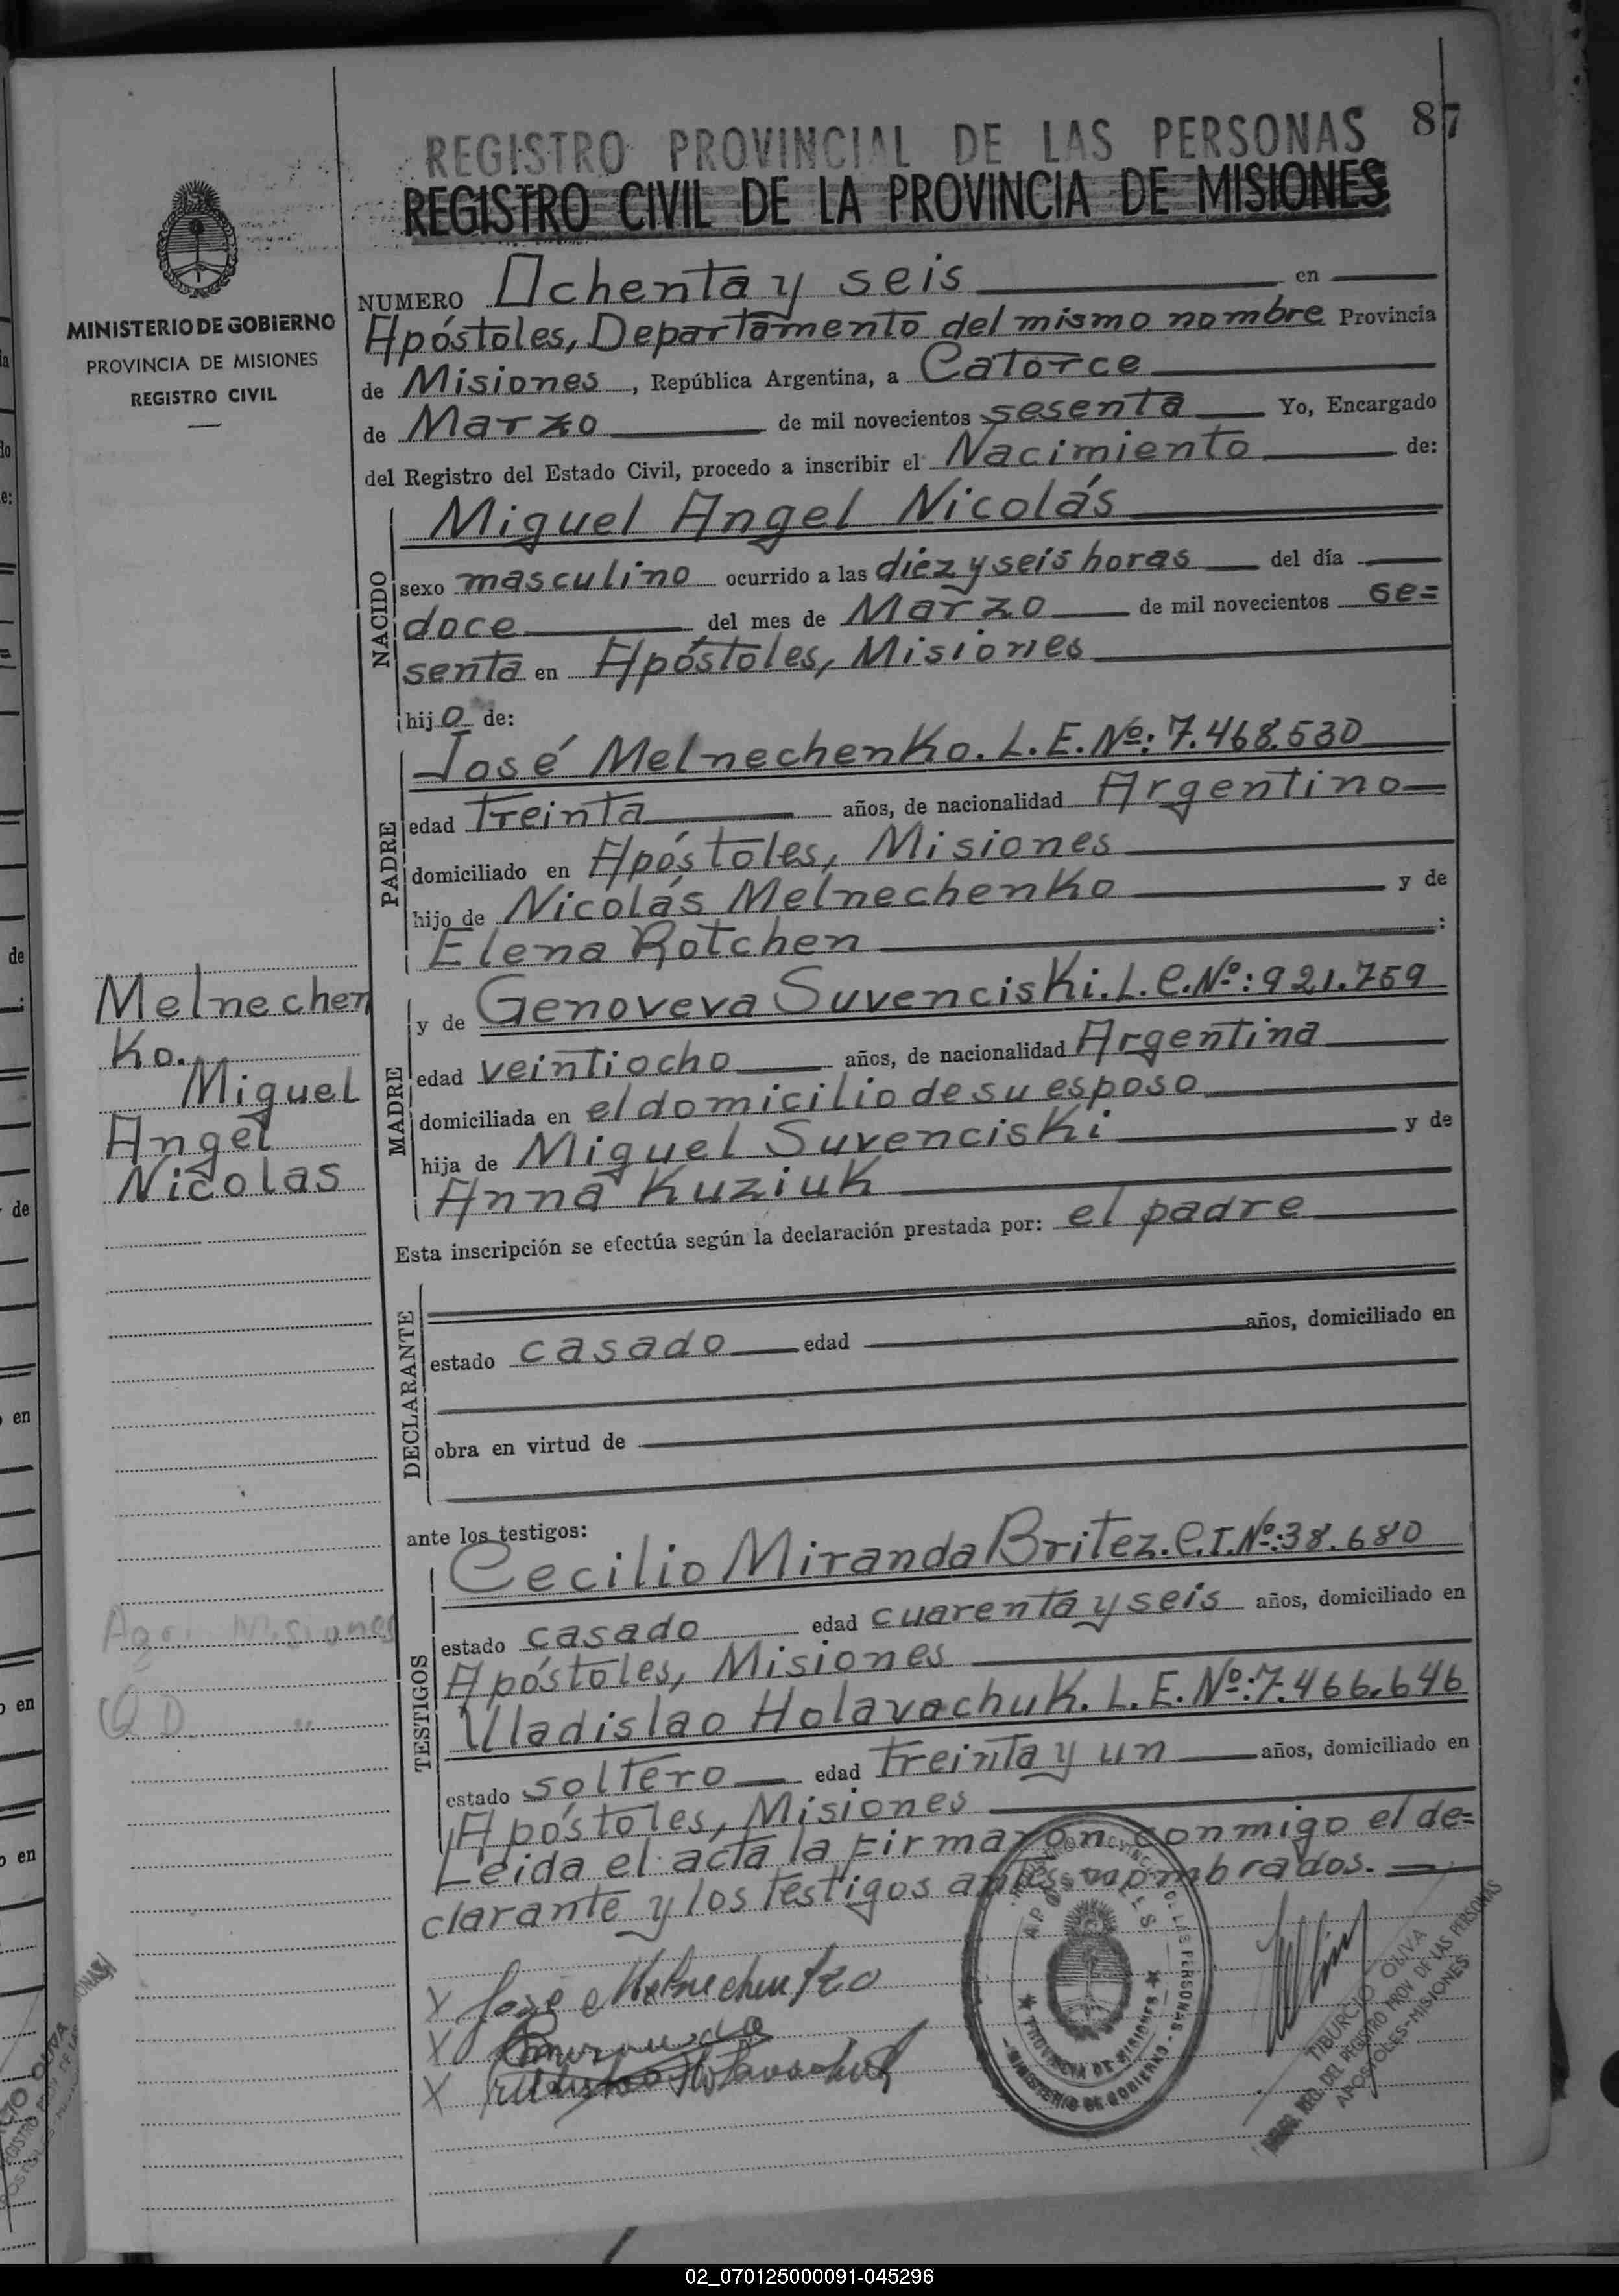 87
REGISTRO PROVINCIAL DE LAS PERSONAS
REGISTRO CIVIL DE LA PROVINCIA DE MISIONES
MINISTERIO DE GOBIERNO
PROVINCIA DE MISIONES
REGISTRO CIVIL
NUMERO Ochenta y seis en
Apóstoles, Departamento del mismo nombre Provincia
de Misiones, República Argentina, a Catorce
de Marzo de mil novecientos sesenta Yo, Encargado
del Registro del Estado Civil, procedo a inscribir el Nacimiento de:
NACIDO
Miguel Angel Nicolás
sexo masculino ocurrido a las diez y seis horas del día
doce del mes de Marzo de mil novecientos se=
senta en Apóstoles, Misiones
hijo de:
PADRE
José Melnechenko. L.E.Nº: 7.468.530
edad treinta años, de nacionalidad Argentino
domiciliado en Apóstoles, Misiones
hijo de Nicolás Melnechenko y de
Elena Rotchen :
MADRE
y de Genoveva Suvenciski. L.C.Nº: 921.759
edad veintiocho años, de nacionalidad Argentina
domiciliada en el domicilio de su esposo
hija de Miguel Suvenciski y de
Anna Kuziuk
Melnechen
Ko.
Miguel
Angel
Nicolas
Esta inscripción se efectúa según la declaración prestada por: el padre
DECLARANTE
estado casado edad años, domiciliado en
obra en virtud de
ante los testigos:
TESTIGOS
Cecilio Miranda Britez. C.I.Nº: 38.680
estado casado edad cuarenta y seis años, domiciliado en
Apóstoles, Misiones
Uladislao Holavachuk. L.E.Nº: 7.466.646
estado soltero edad treinta y un años, domiciliado en
Apóstoles, Misiones
Leida el acta la firmaron conmigo el de=
clarante y los testigos antes nombrados.
Misiones
X José Melnechenko
X
X Uladislao Holavachuk
APOSTOLES
PROVINCIA DE MISIONES
MINISTERIO DE GOBIERNO
TIBURCIO OLIVA
ENCARG. REG. DEL REGISTRO PROV. DE LAS PERSONAS
APOSTOLES-MISIONES
02_070125000091-045296